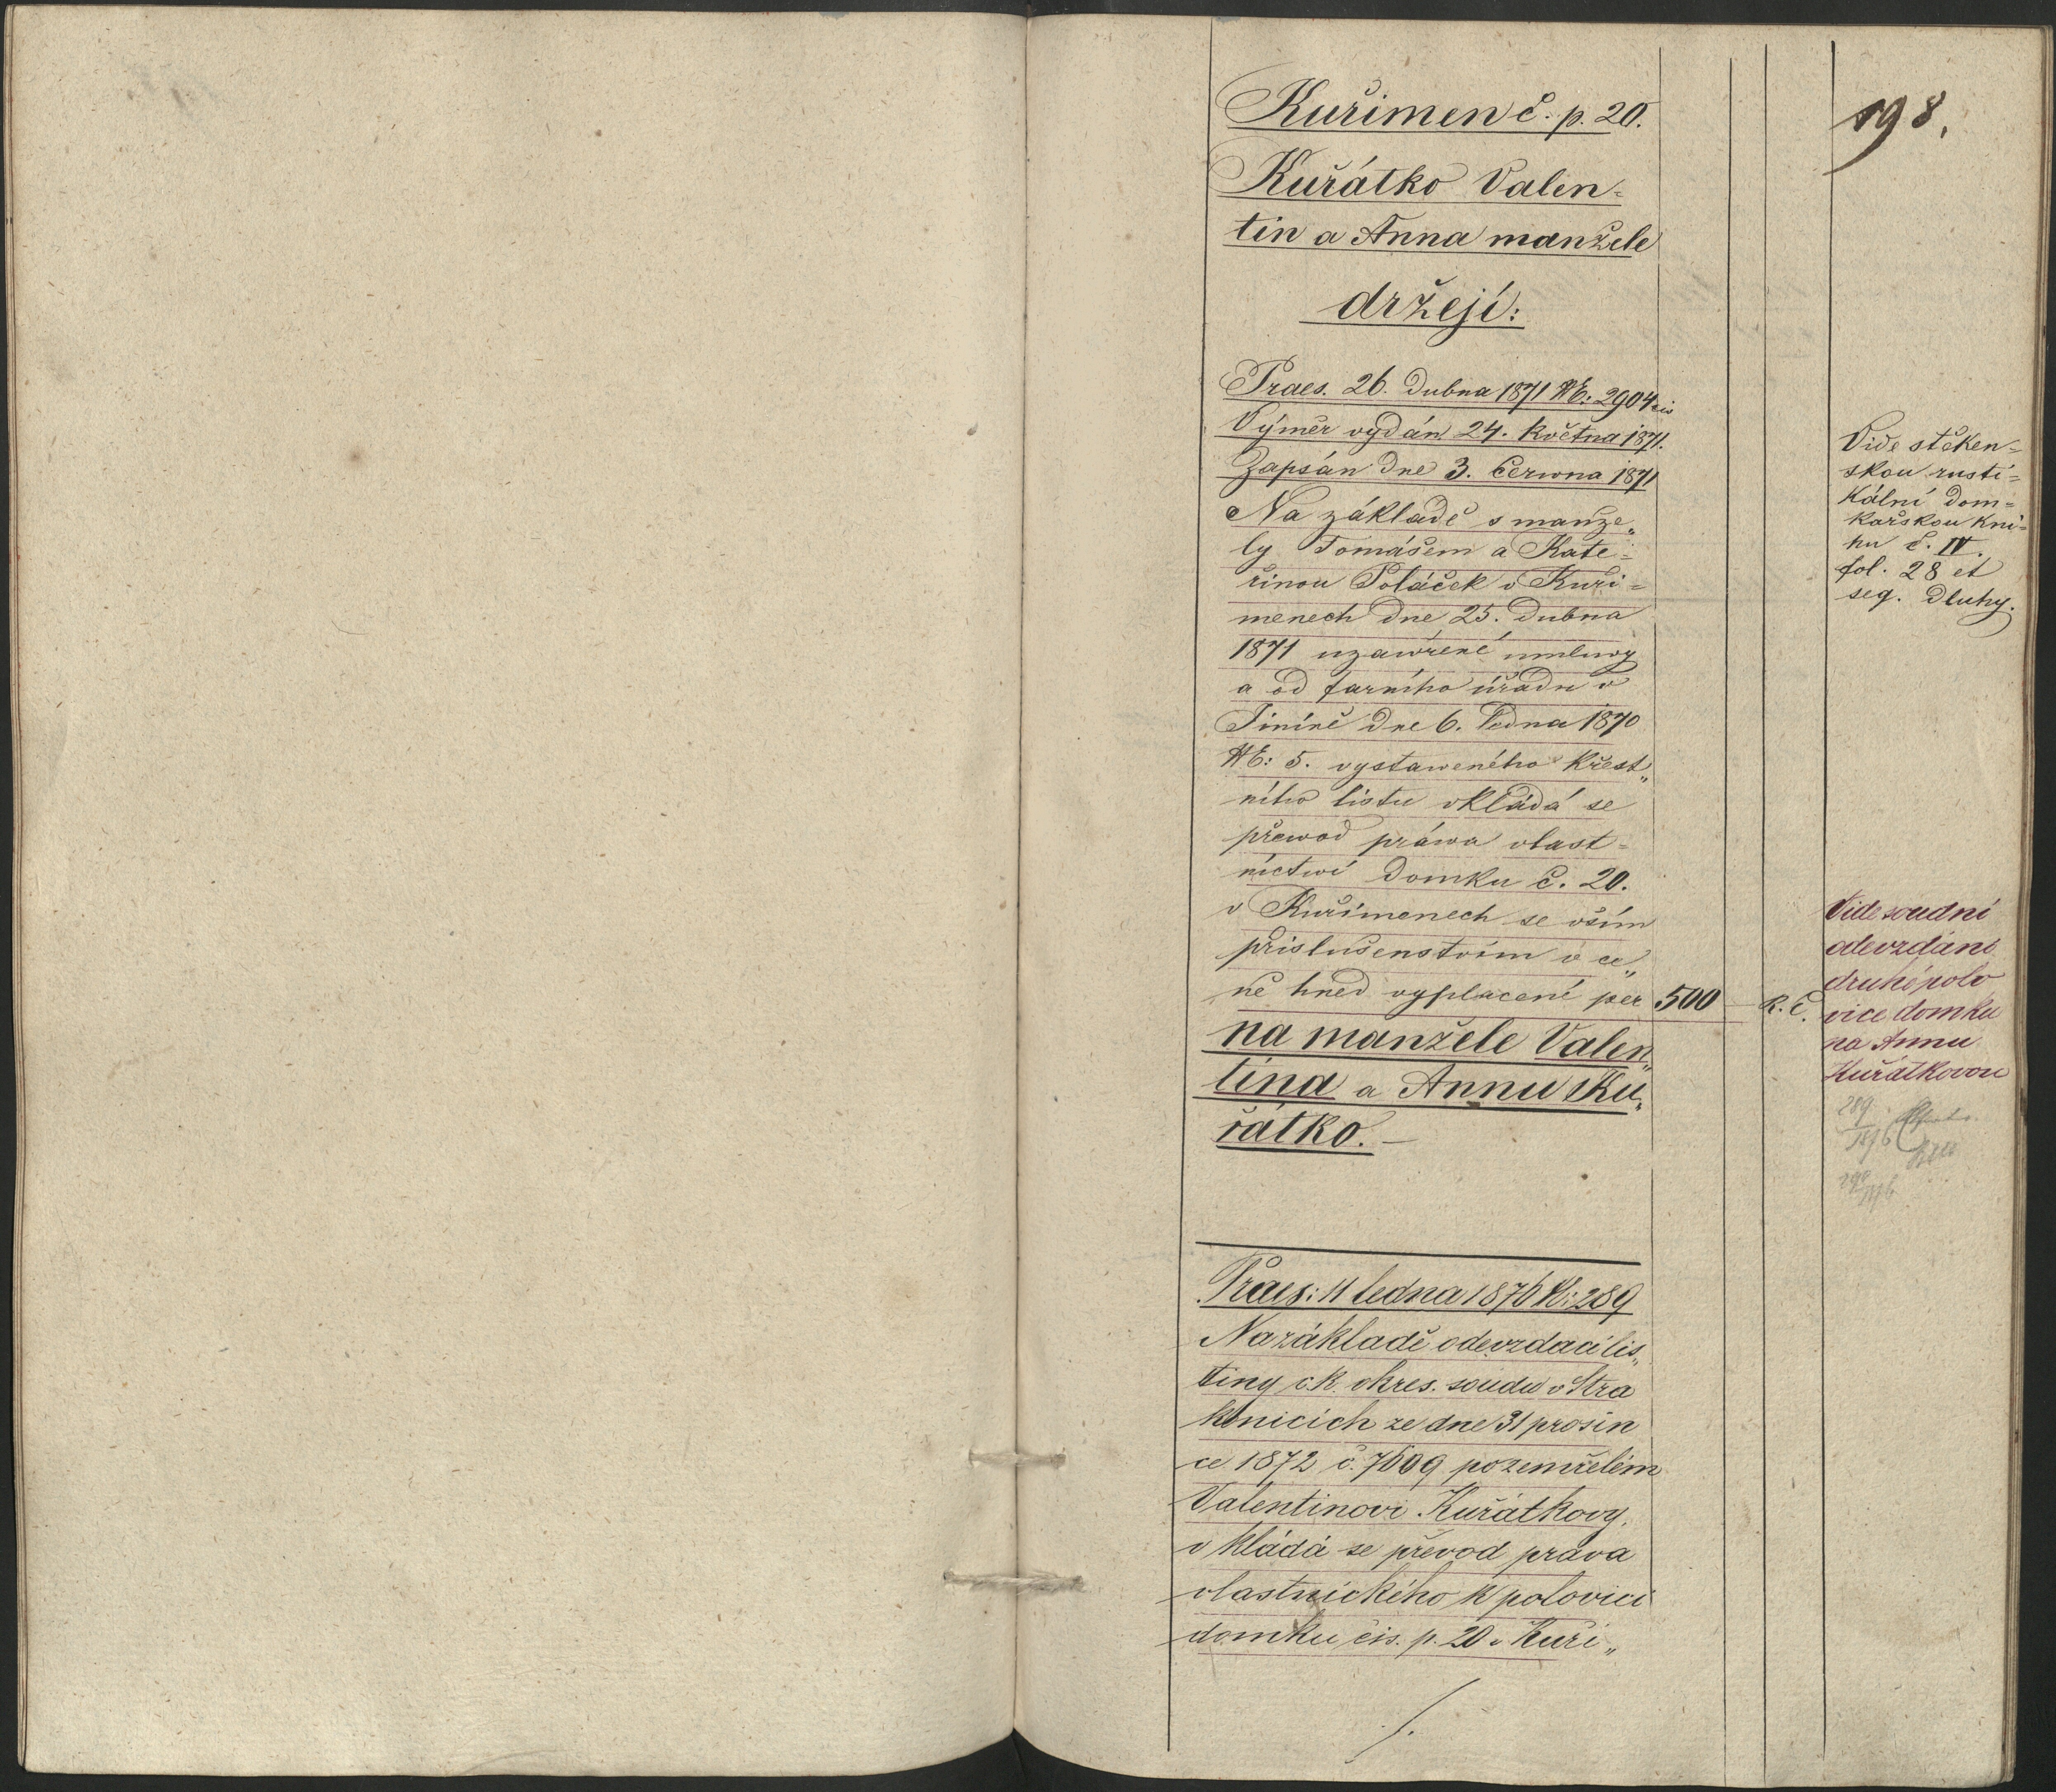 198.
Kuřimen č. p. 20.
Kuřátko Valen=
tin a Anna manželé
držejí:
Praes. 26. Dubna 1871 NE: 2904 cis
Výměr vydán 24. května 1871.
Zapsán dne 3. června 1871
Na základě s manže„
ly Tomášem a Kate=
řinou Poláček v Kuři=
menech dne 25. dubna
1871 uzavřené umluvy
a od farního úřadu v
Jiníně dne 6. ledna 1870
NE: 5. vystaweného křest„
ního listu vkládá se
převod práwa vlast=
nictwí domku č. 20.
v Kuřimenech se vším
přislušenstvím v ce„
ně hned vyplacené per 500 — R. č.
na manžele Valen„
tina a Annu Ku„
řátko. —
Praes: 11 ledna 1876 N: 289
Na základě odevzdací lis„
tiny c.k. okres. soudu v Stra
konicích ze dne 31 prosin
ce 1872 č. 7609 po zemřelém
Valentinovi Kuřátkovy,
vkládá se převod práva
vlastnického k polovici
domku čis. p. 20 v Kuři„
./.
Vide stěken=
skou rusti=
kální dom=
kařskou kni=
hu č. IV.
fol. 28 et
seq. Dluhy.
Vide soudní
odevzdání
druhé polo
vice domku
na Annu
Kuřátkovou
289
1876
290
1876